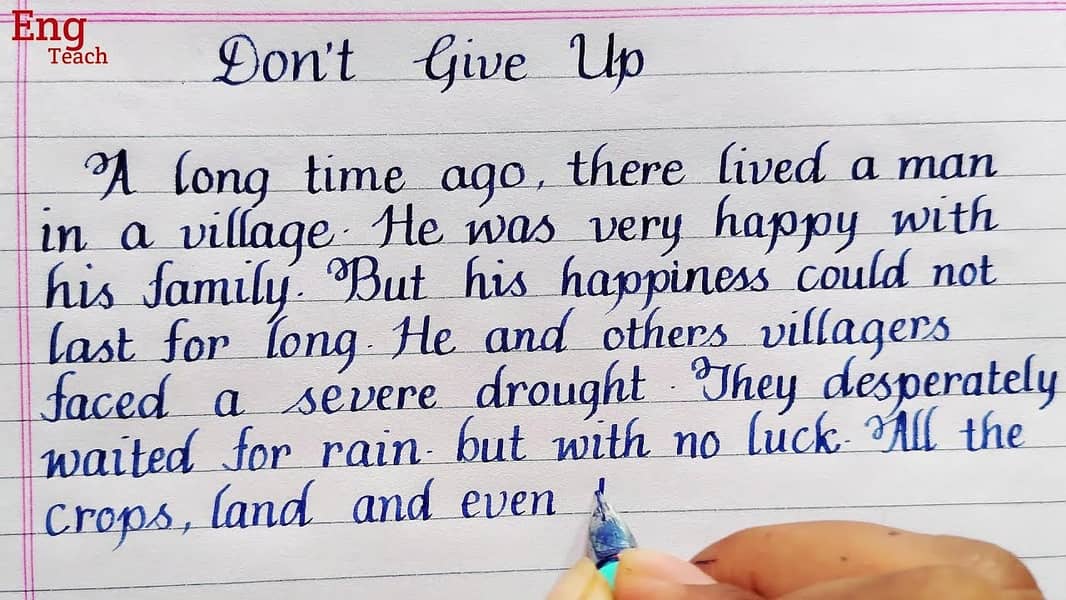 Eng
Teach
Don't Give Up
A long time ago, there lived a man
in a village. He was very happy with
his family. But his happiness could not
last for long. He and others villagers
faced a severe drought. They desperately
waited for rain. but with no luck. All the
crops, land and even